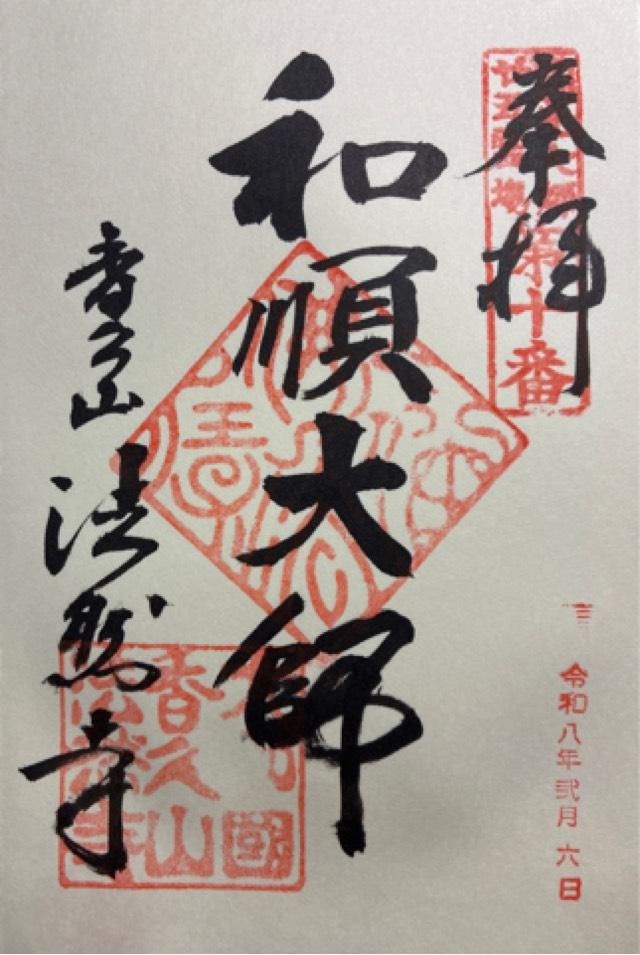 奉拝
第十番
和順大師
香久山
法然寺
香久山
法然寺
令和八年弐月六日